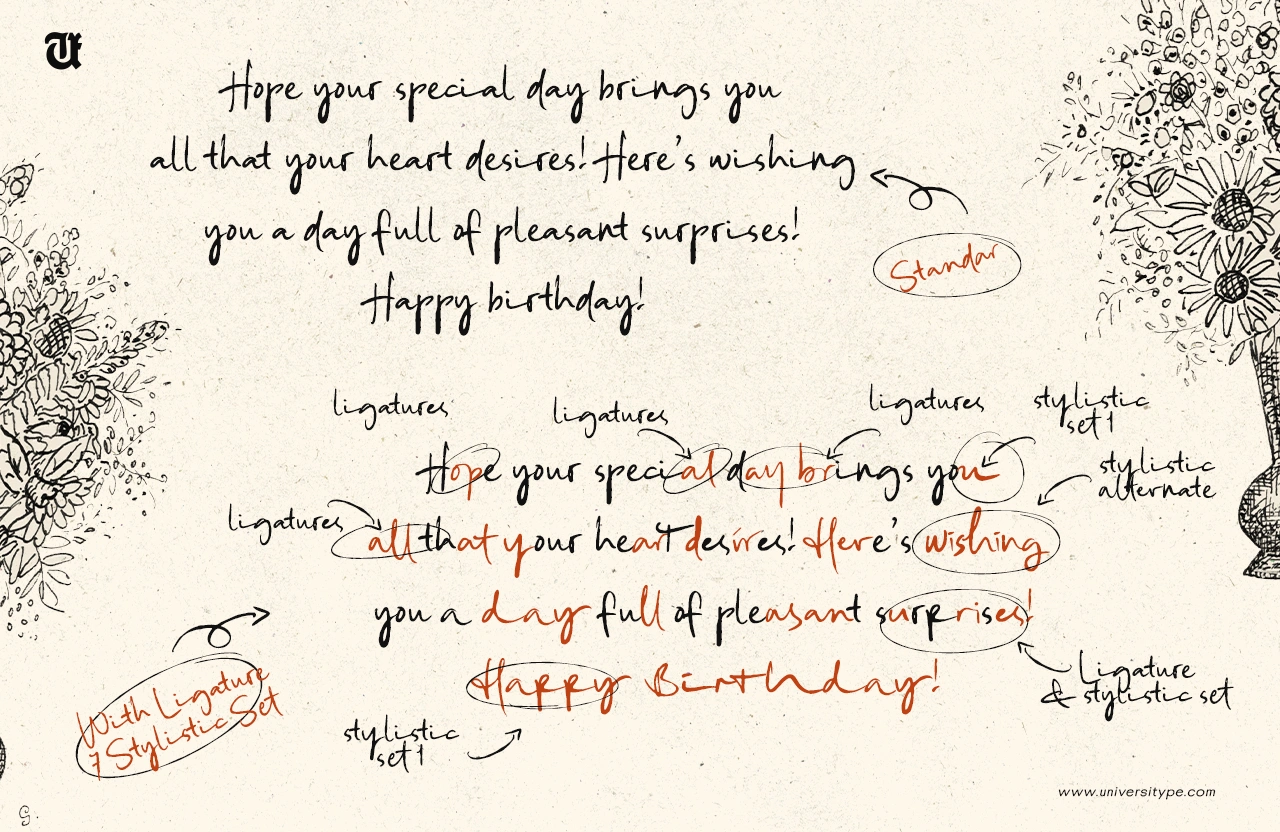 U
Hope your special day brings you
all that your heart desires! Here's wishing
you a day full of pleasant surprises!
Happy birthday!
Standar
ligatures
ligatures
ligatures
stylistic
set 1
Hope your special day brings you
stylistic
alternate
ligatures
all that your heart desires! Here's wishing
you a day full of pleasant surprises!
Happy Birthday!
Ligature
& stylistic set
With Ligature
7 Stylistic Set
stylistic
set 1
www.universitype.com
G.